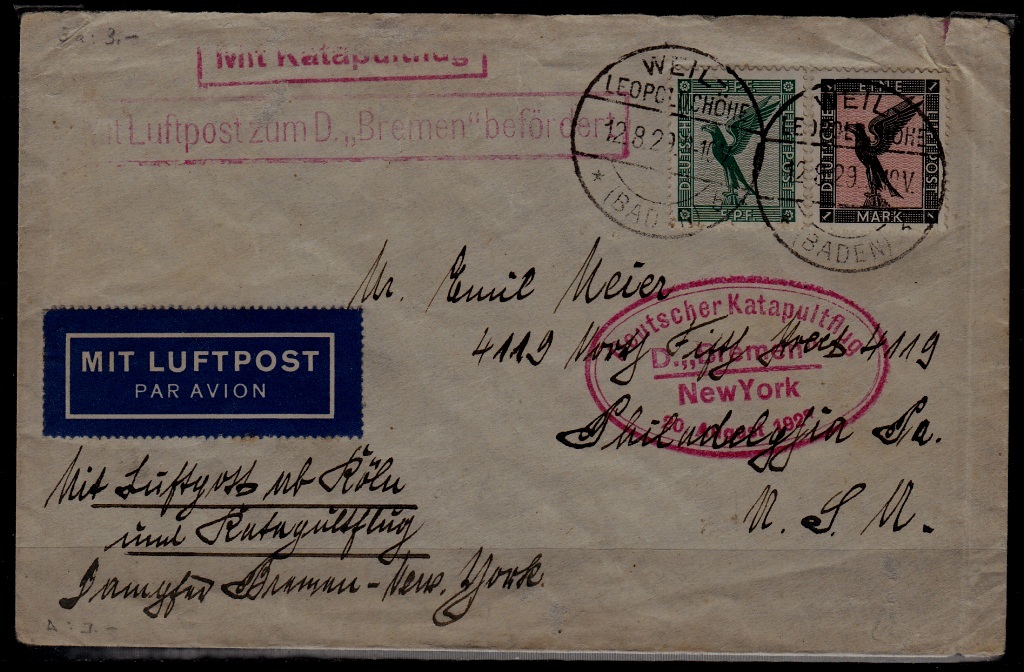 3,-
Mit Katapultflug
Luftpost zum D. „Bremen" befördert
WEIL-
LEOPOLDSHÖHE
12.8.29.
(BADEN)
5 PF
DEUTSCHE
5 PF.
WEIL-
LEOPOLDSHÖHE
12.8.29. V.
(BADEN)
EINE
DEUTSCHE
1 MARK 1
Mr. Emil Meier
4119 North Fifth Street 4119
Philadelphia Pa.
U. S. A.
Deutscher Katapultflug
D. „Bremen"
New York
20. August 1929
MIT LUFTPOST
PAR AVION
Mit Luftpost ab Köln
und Katapultflug
Dampfer Bremen - New. York.